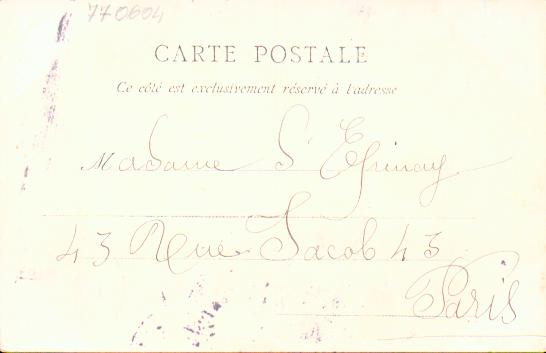 770604
CARTE POSTALE
Ce côté est exclusivement réservé à l'adresse
Madame S' Epinay
43 Rue Jacob 43
Paris